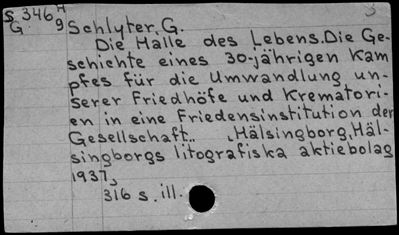 S 346 H
G. 9 Schlyter, G.
Die Halle des Lebens. Die Ge-
schichte eines 30-jährigen Kam
pfes für die Umwandlung un-
serer Friedhöfe und Krematori-
en in eine Friedensinstitution der
Gesellschaft.. Hälsingborg, Häl-
singborgs litografiska aktiebolag
1937,
316 s. ill.